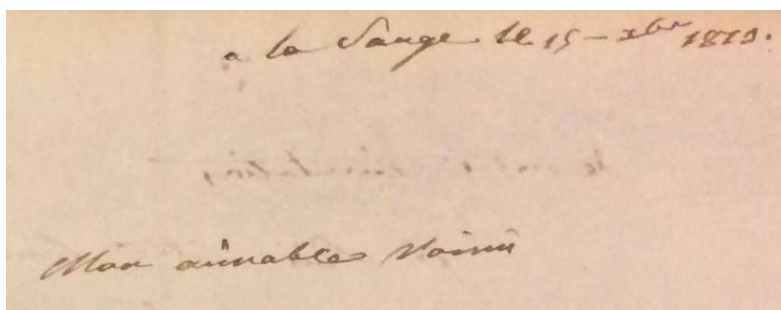 a la Sauge le 15 - xbre 1813.
Mon aimable Voisin